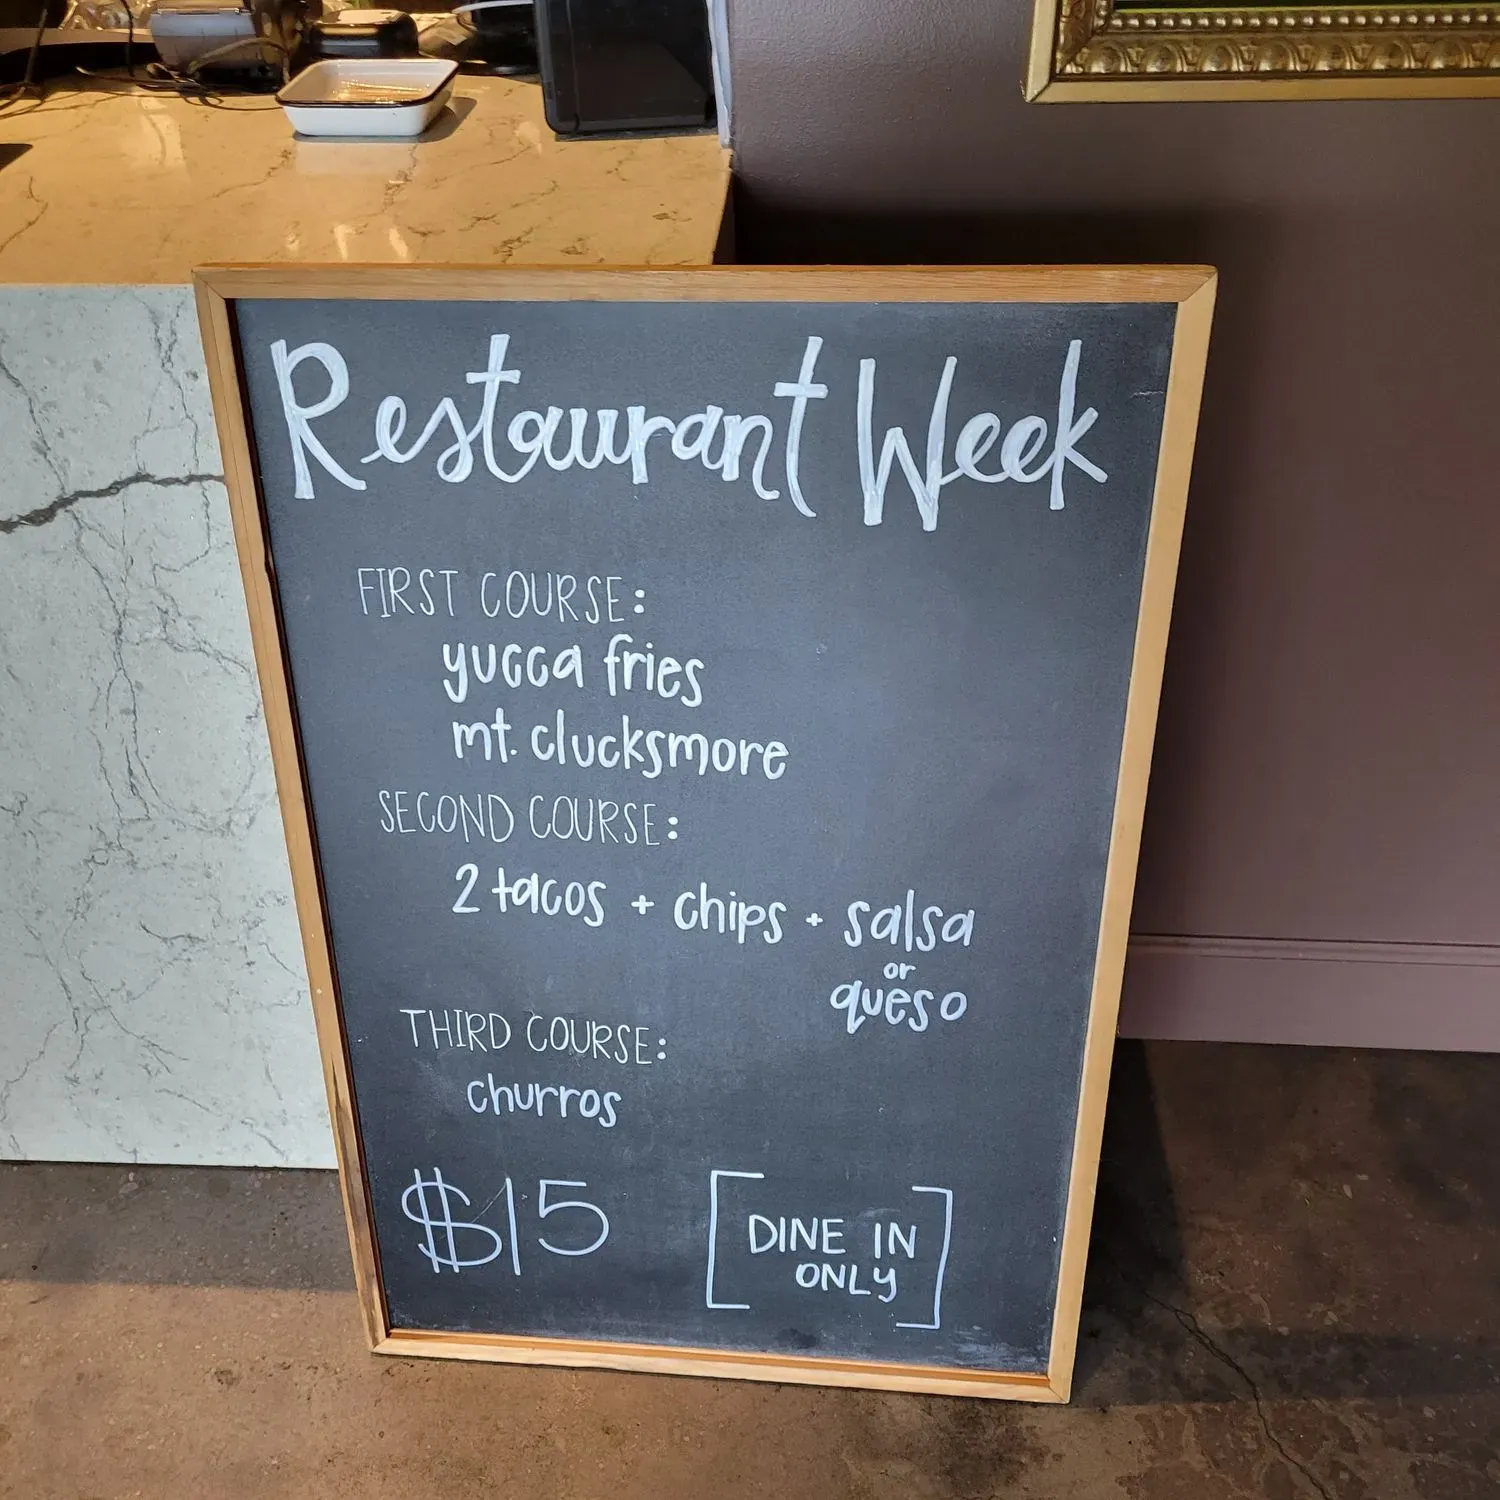 Restaurant Week
FIRST COURSE:
yucca fries
mt. clucksmore
SECOND COURSE:
2 tacos + chips + salsa
or
queso
THIRD COURSE:
churros
$15
[DINE IN
ONLY]